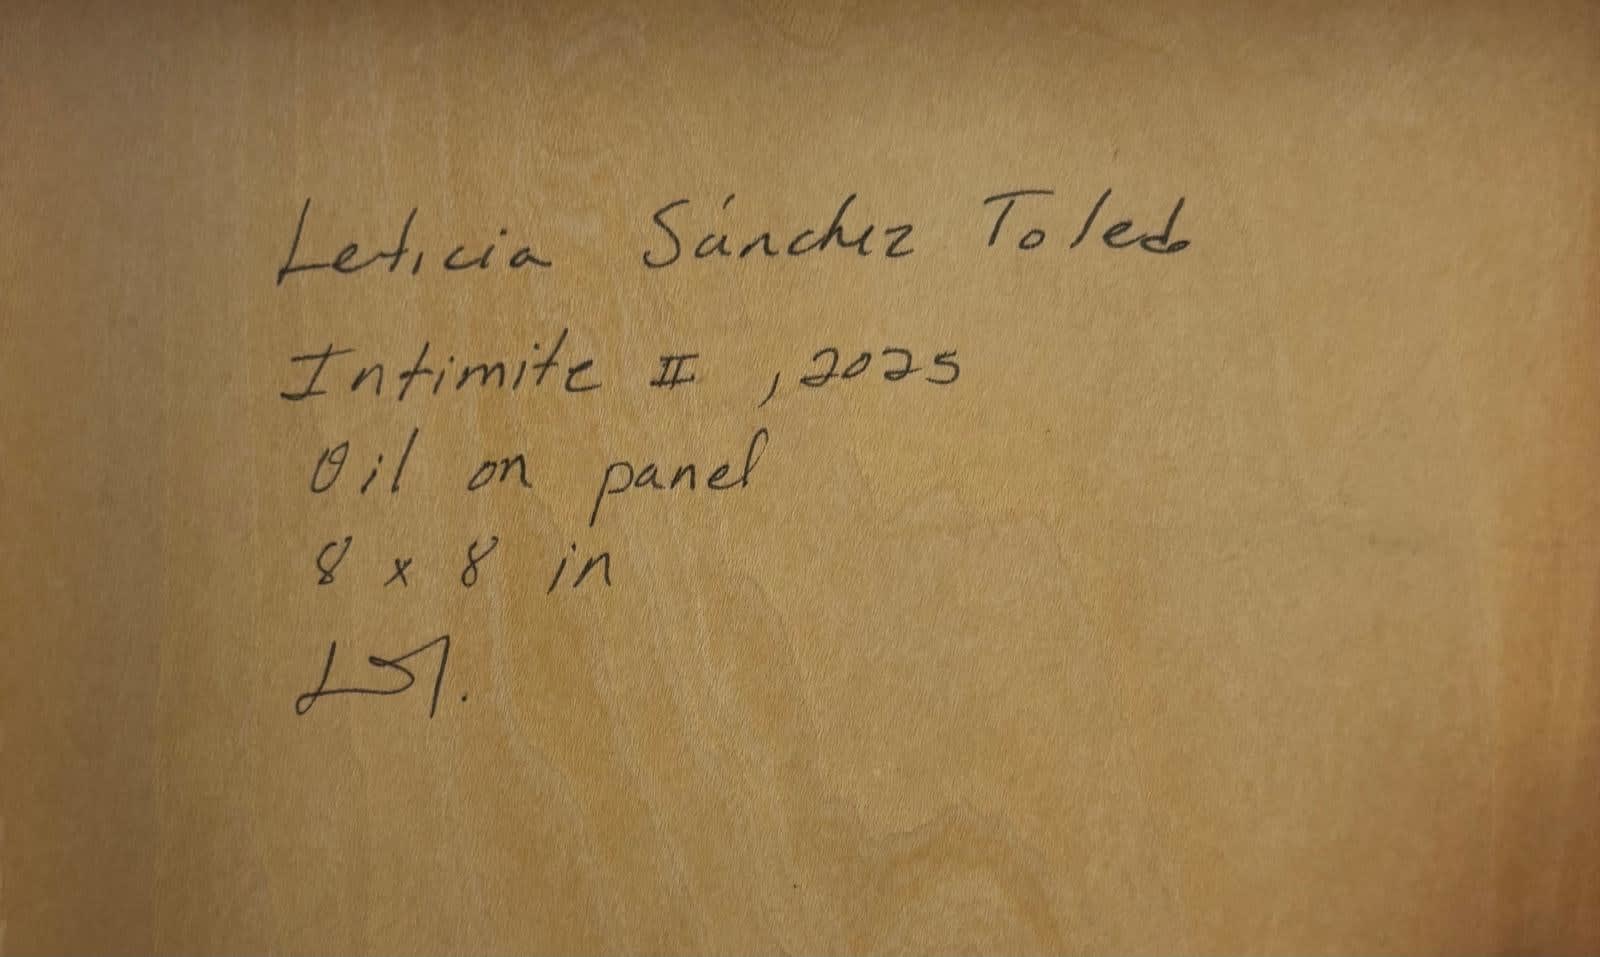 Leticia Sánchez Toledo
Intimite II, 2025
Oil on panel
8 x 8 in
LST.